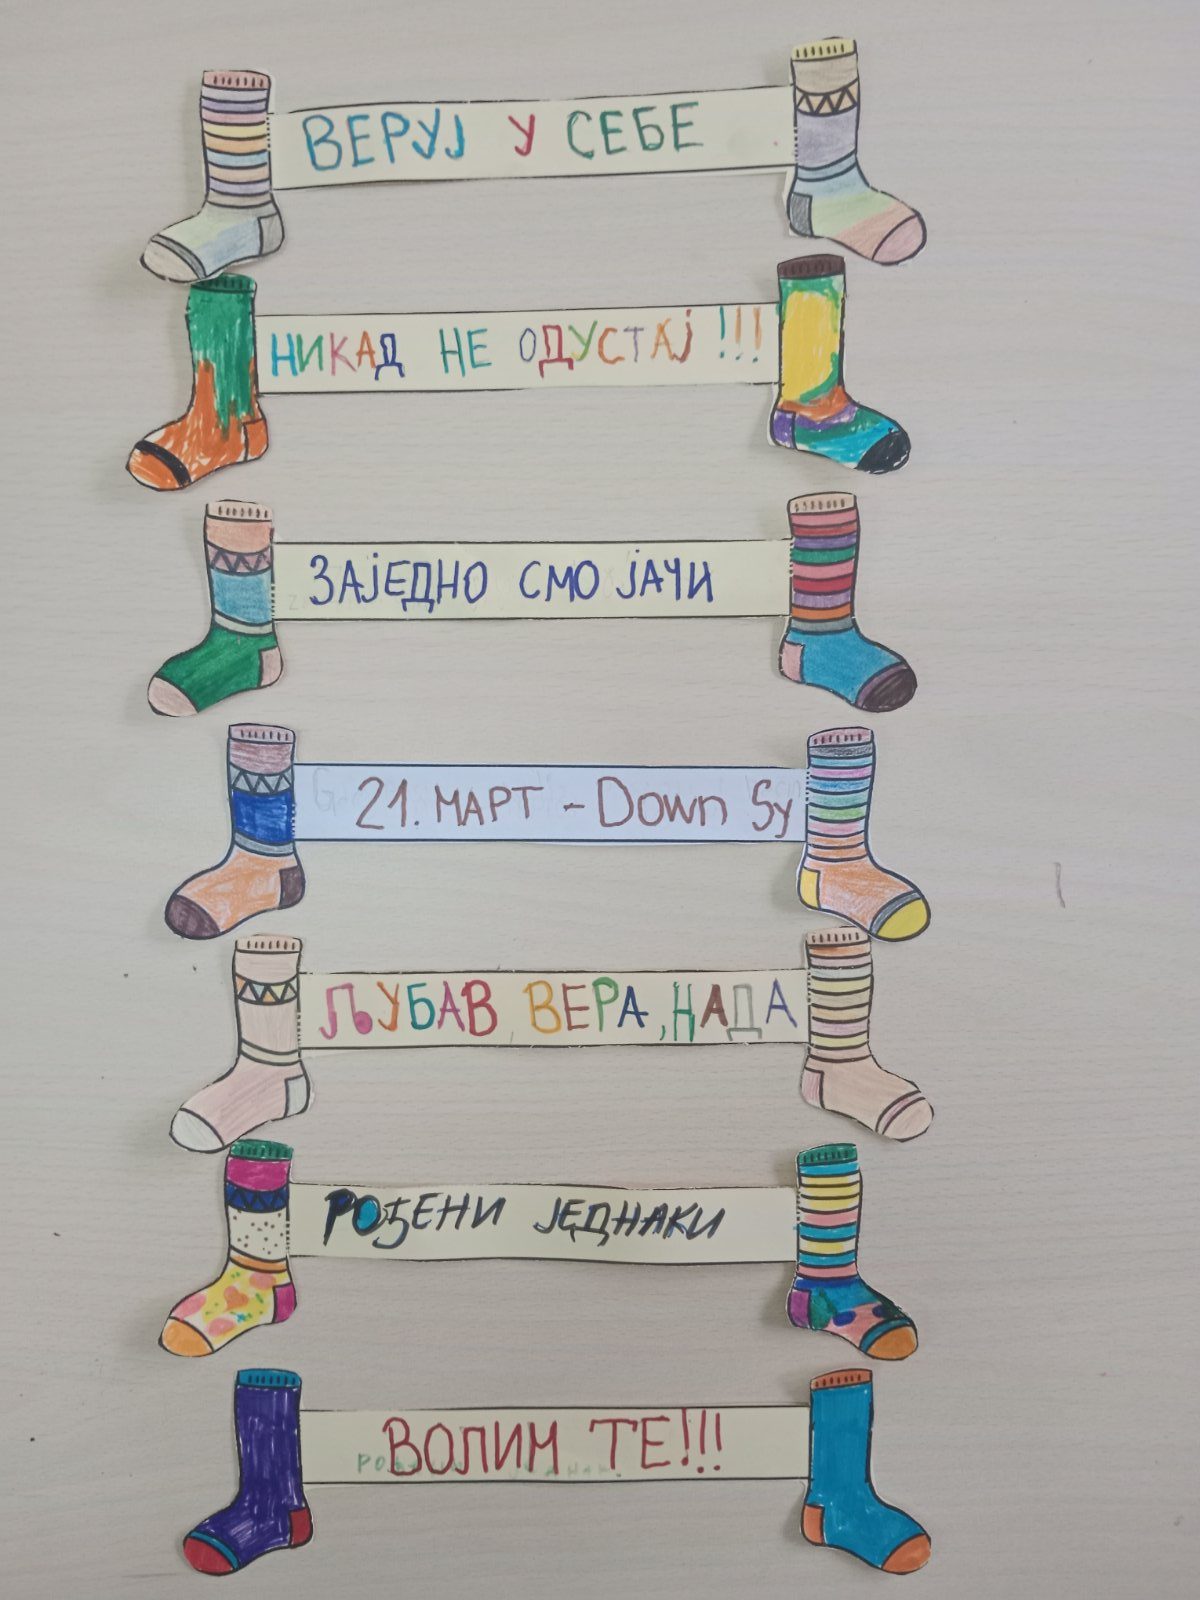 ВЕРУЈ У СЕБЕ
НИКАД НЕ ОДУСТАЈ !!!
ЗАЈЕДНО СМО ЈАЧИ
21. МАРТ - Down Sy
ЉУБАВ, ВЕРА, НАДА
РОЂЕНИ ЈЕДНАКИ
ВОЛИМ ТЕ!!!